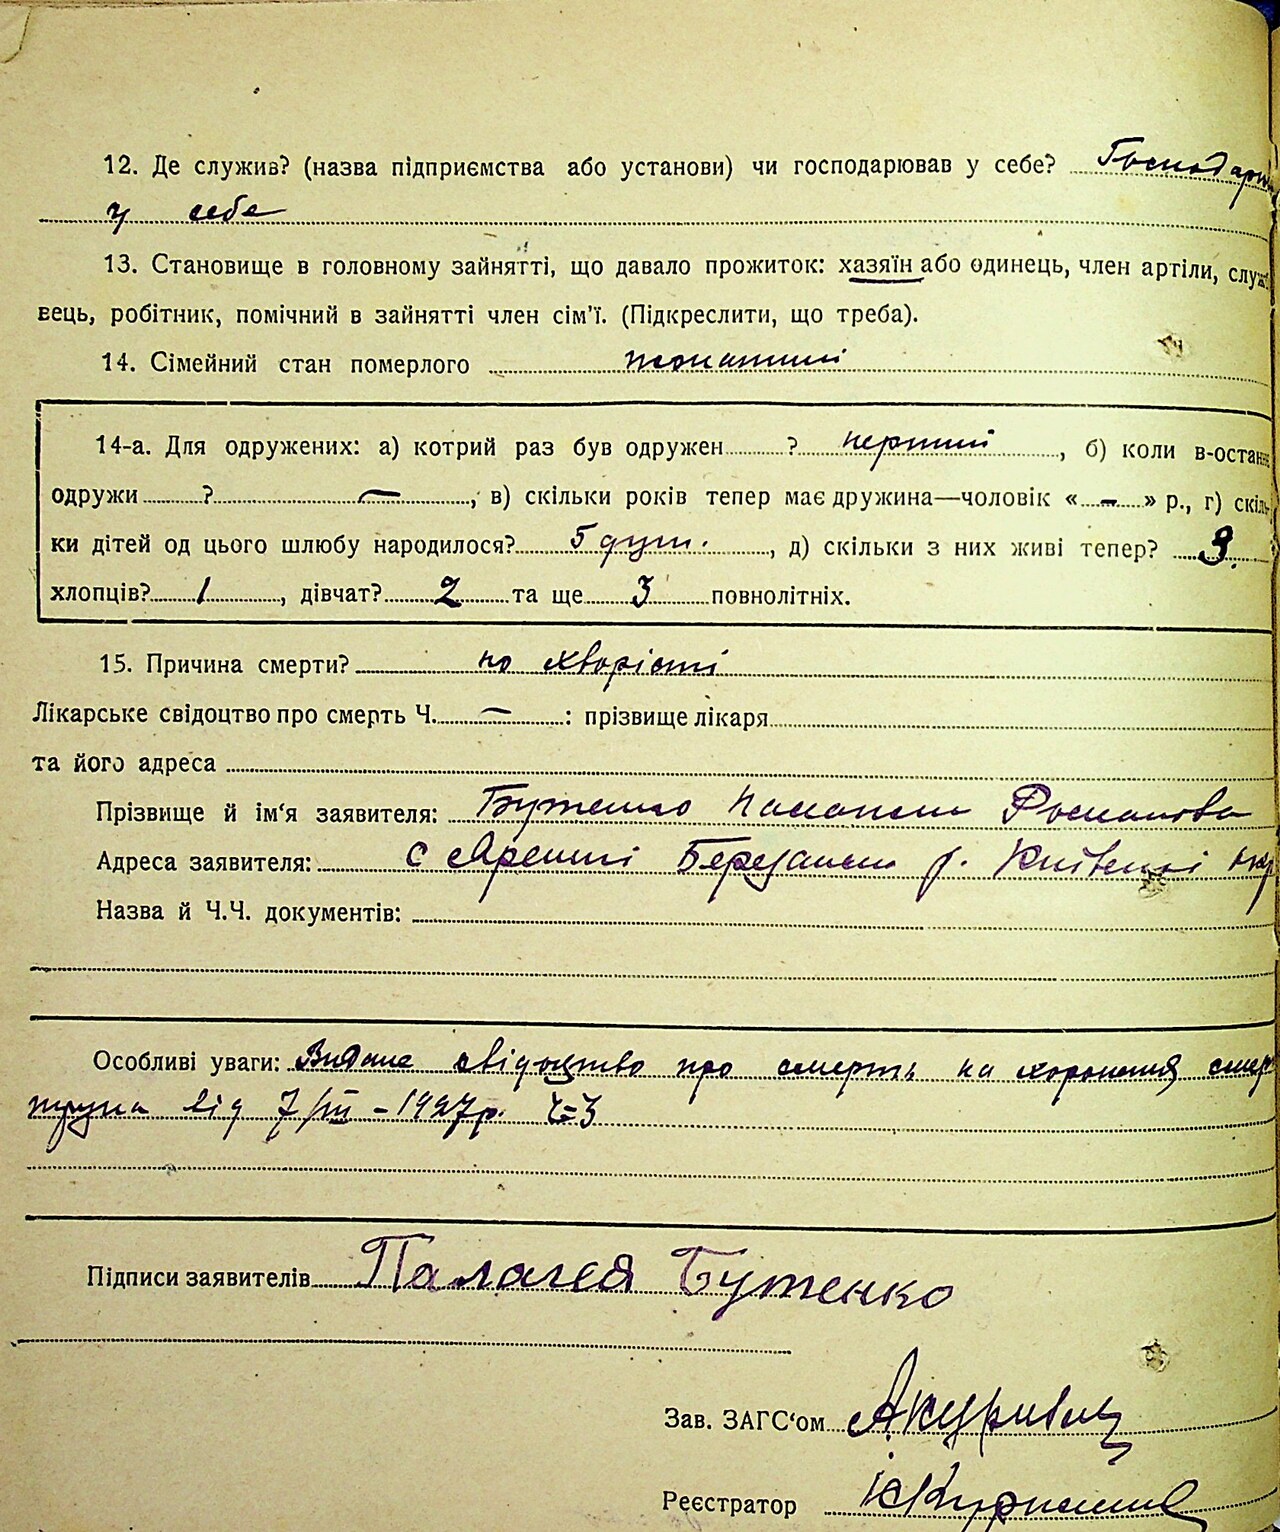 12. Де служив? (назва підприємства або установи) чи господарював у себе? Господарю
у себе
13. Становище в головному зайнятті, що давало прожиток: хазяїн або одинець, член артіли, служ
вець, робітник, помічний в зайнятті член сім'ї. (Підкреслити, що треба).
14. Сімейний стан померлого жонатий
14-а. Для одружених: а) котрий раз був одружен ? перший, б) коли в-останнє
одружи ? —, в) скільки років тепер має дружина—чоловік « — » р., г) скіль-
ки дітей од цього шлюбу народилося? 5 душ., д) скільки з них живі тепер? 3.
хлопців? 1, дівчат? 2 та ще 3 повнолітніх.
15. Причина смерти? по хворісті
Лікарське свідоцтво про смерть Ч. — : прізвище лікаря
та його адреса
Прізвище й ім'я заявителя: Бутенко Романова
Адреса заявителя: с Ярешкі Березанськ р. Київскі окр
Назва й Ч.Ч. документів:
Особливі уваги: Видане свідоцтво про смерть на хоронення смер
трупа від 7/III – 1927р. Ч=3
Підписи заявителів Палагея Бутенко
Зав. ЗАГС'ом
Реєстратор